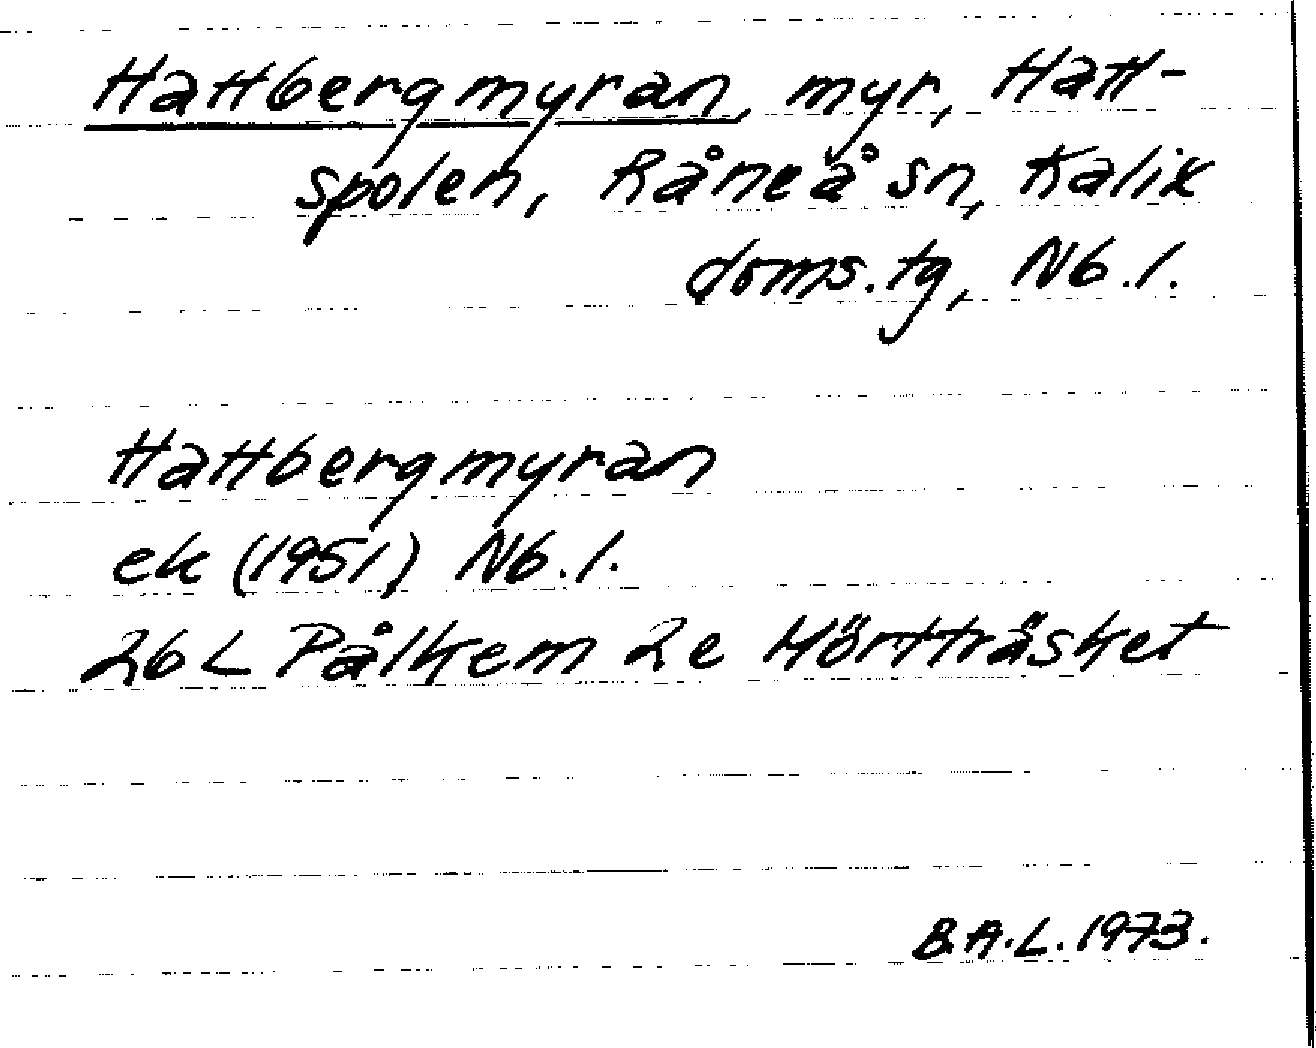 Hattbergmyran, myr, Hatt-
spolen, Råneå sn, Kalix
doms.tg, Nb.l.
Hattbergmyran
ek (1951) Nb.l.
26L Pålkem 2e Hörtträsket
B.A.L. 1973.